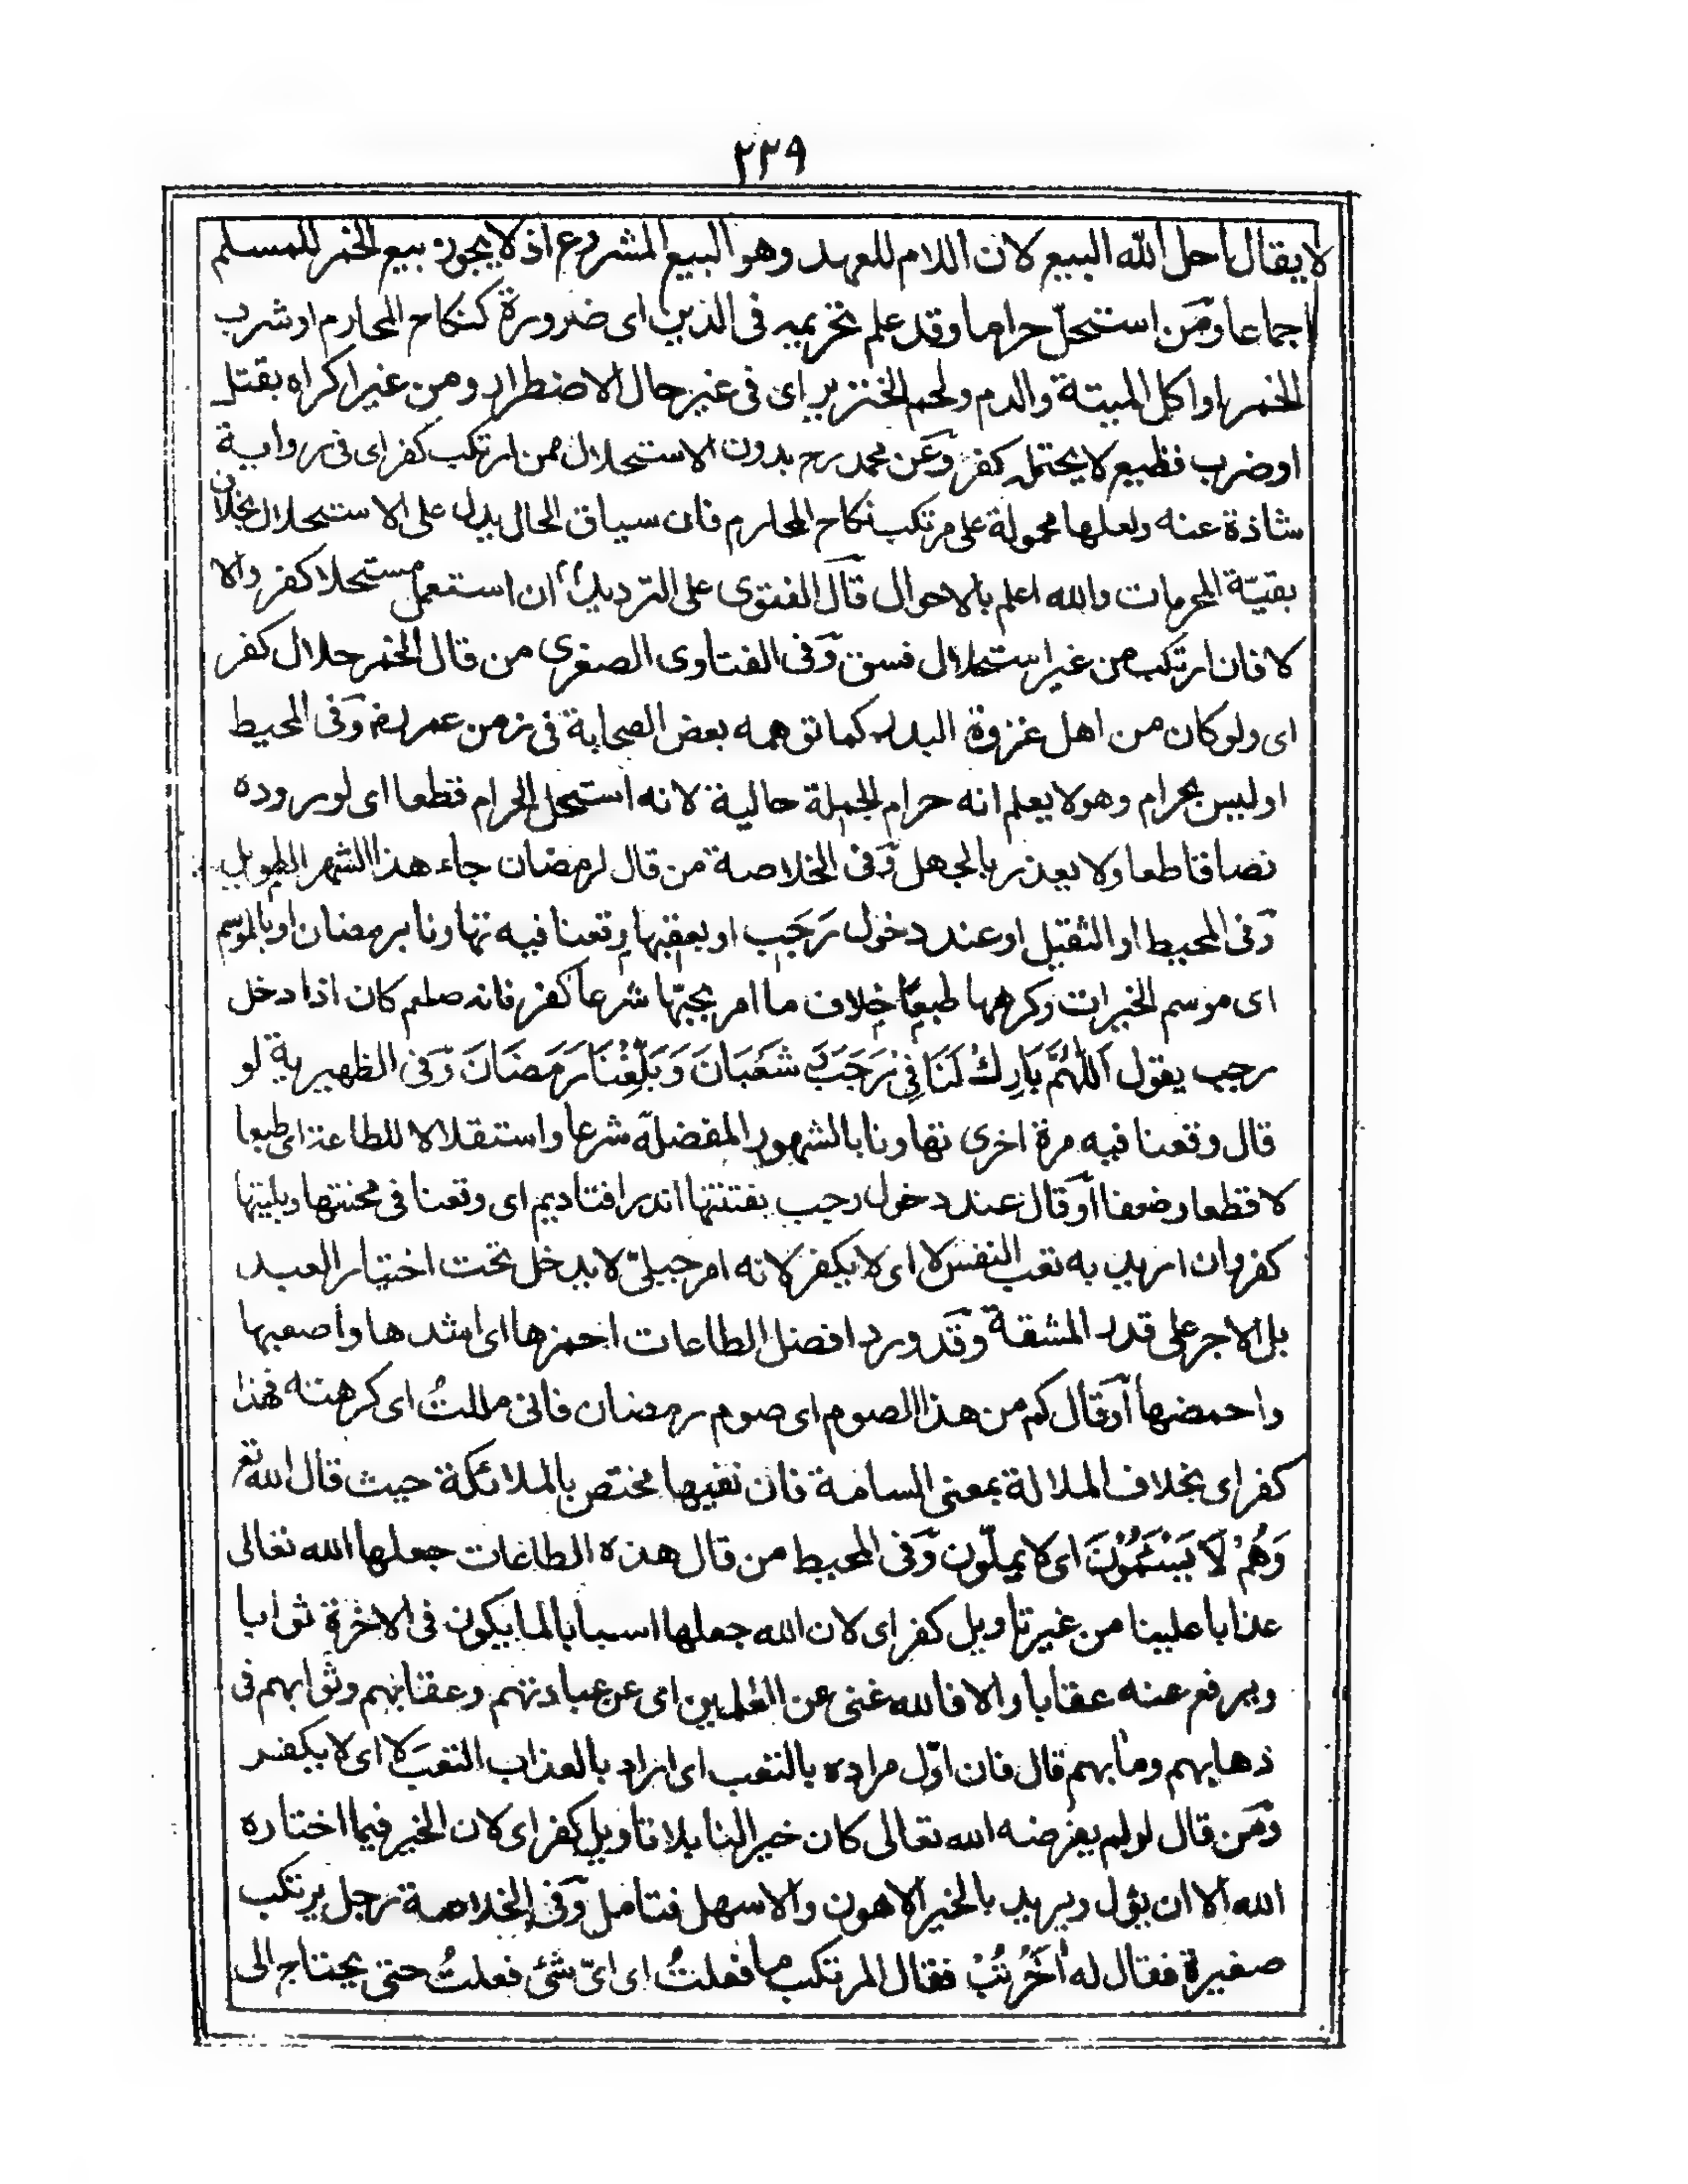 ٢٣٩
لا يقال احل الله البيع لان اللام للعهد وهو البيع المشروع اذ لا يجوز بيع الخمر للمسلم
اجماعا ومن استحلّ حراما وقد علم تحريمه فى الدين اى ضرورة كنكاح المحارم او شرب
الخمر او اكل الميتة والدم ولحم الخنزير اى فى غير حال الاضطرار ومن غير اكراه بقتل
او ضرب فظيع لا يحتمله كفر وعن محمد رح بدون الاستحلال ممن ارتكب كفر اى فى رواية
شاذة عنه ولعلها محمولة على مرتكب نكاح المحارم فان سياق الحال يدل على الاستحلال بخلاف
بقيّة المحرمات والله اعلم بالاحوال قال الفتوى على الترديد ان استعمل مستحلا كفر والا
لا فان ارتكب من غير استحلال فسق وفى الفتاوى الصغرى من قال الخمر حلال كفر
اى ولو كان من اهل غزوة البدر كما توهمه بعض الصحابة فى زمن عمر رض وفى المحيط
او ليس بحرام وهو لا يعلم انه حرام الجملة حالية لانه استحل الحرام قطعا اى لوروده
نصا قاطعا ولا يعذر بالجهل وفى الخلاصة من قال لرمضان جاء هذا الشهر الطويل
وفى المحيط او الثقيل او عند دخول رَجَبٍ او بعقبها وقعنا فيه تهاونا برمضان او بالموسم
اى موسم الخيرات وكرهها طبعًا خلاف ما امر بحبّها شرعا كفر فانه صلعم كان اذا دخل
رجب يقول اَللّٰهُمَّ بَارِكْ لَنَا فِىْ رَجَبَ وَ شَعْبَانَ وَبَلِّغْنَا رَمَضَانَ وفى الظهيرية لو
قال وقعنا فيه مرة اخرى تهاونا بالشهور المفضلة شرعا واستثقلالا للطاعة اى طبعا
لا قطعا وضعفا او قال عند دخول رجب بفتنتها اندر افتاديم اى وقعنا فى محنتها وبليتها
كفر وان اريد به تعب النفس لا اى لا يكفر لانه امر جبلىّ لا يدخل تحت اختيار العبد
بل الاجر على قدر المشقة وقد ورد افضل الطاعات احمزها اى اشدها واصعبها
واحمضها او قال كم من هذا الصوم اى صوم رمضان فانى مللتُ اى كرهته فهذا
كفر اى بخلاف الملالة بمعنى السامة فان نفيها مختص بالملائكة حيث قال الله تع
وَهُمْ لَا يَسْئَمُوْنَ اى لا يملّون وفى المحيط من قال هذه الطاعات جعلها الله تعالى
عذابا علينا من غير تاويل كفر اى لان الله جعلها اسبابا لما يكون فى الاخرة ثوابا
ويرفع عنه عقابا والا فالله غنى عن العٰلمين اى عن عبادتهم وعقابهم وثوابهم فى
ذهابهم ومأبهم قال فان اوّل مراده بالتعب اى اراد بالعذاب التعب لا اى لا يكفر
ومن قال لو لم يفرضه الله تعالى كان خيرا لنا بلا تاويل كفر اى لان الخير فيما اختاره
الله الا ان يؤل ويريد بالخير الاهون والاسهل فتامل وفى الخلاصة رجل يرتكب
صغيرة فقال له اٰخر تُبْ فقال المرتكب ما فعلتُ اى اىّ شئ فعلتُ حتى يحتاج الى